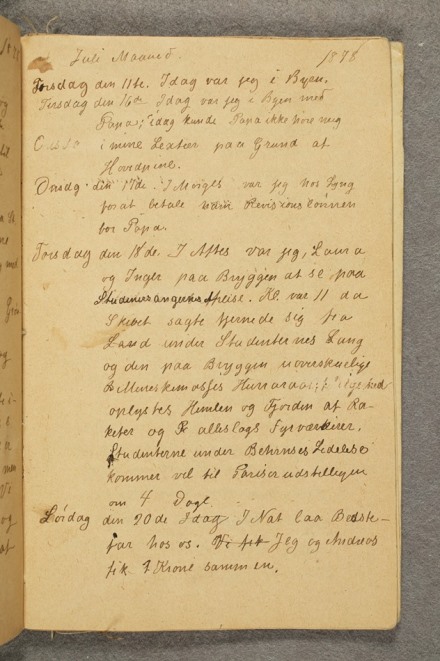 Juli Maaned. 1878
Torsdag den 11te. Idag var jeg i Byen.
Tirsdag den 16de Idag var jeg i Byen med
Papa; idag kunde Papa ikke høre mig
i mine Lextier paa Grund af
Hovedpine.
Onsdag den 17de. I Morges var jeg hos Lyng
for at betale
for Papa.
Torsdag den 18de. I Aftes var jeg, Laura
og Inger paa Bryggen at se paa
Studentersangernes Afreise. Kl. var 11 da
Skibet sagte fjernede sig fra
Land under Studenternes Sang
og den paa Bryggen uoverskuelige
Menneskemasses Hurraraab;
oplystes Himlen og Fjorden af Ra-
keter og alleslags Fyrværkerier.
Studenterne under Behrenses Ledelse
kommer vel til Pariserudstillingen
om 4 Dage.
Lørdag den 20de Idag I Nat laa Bedste-
far hos os. Vi fik Jeg og Andreas
fik 1 Krone sammen.